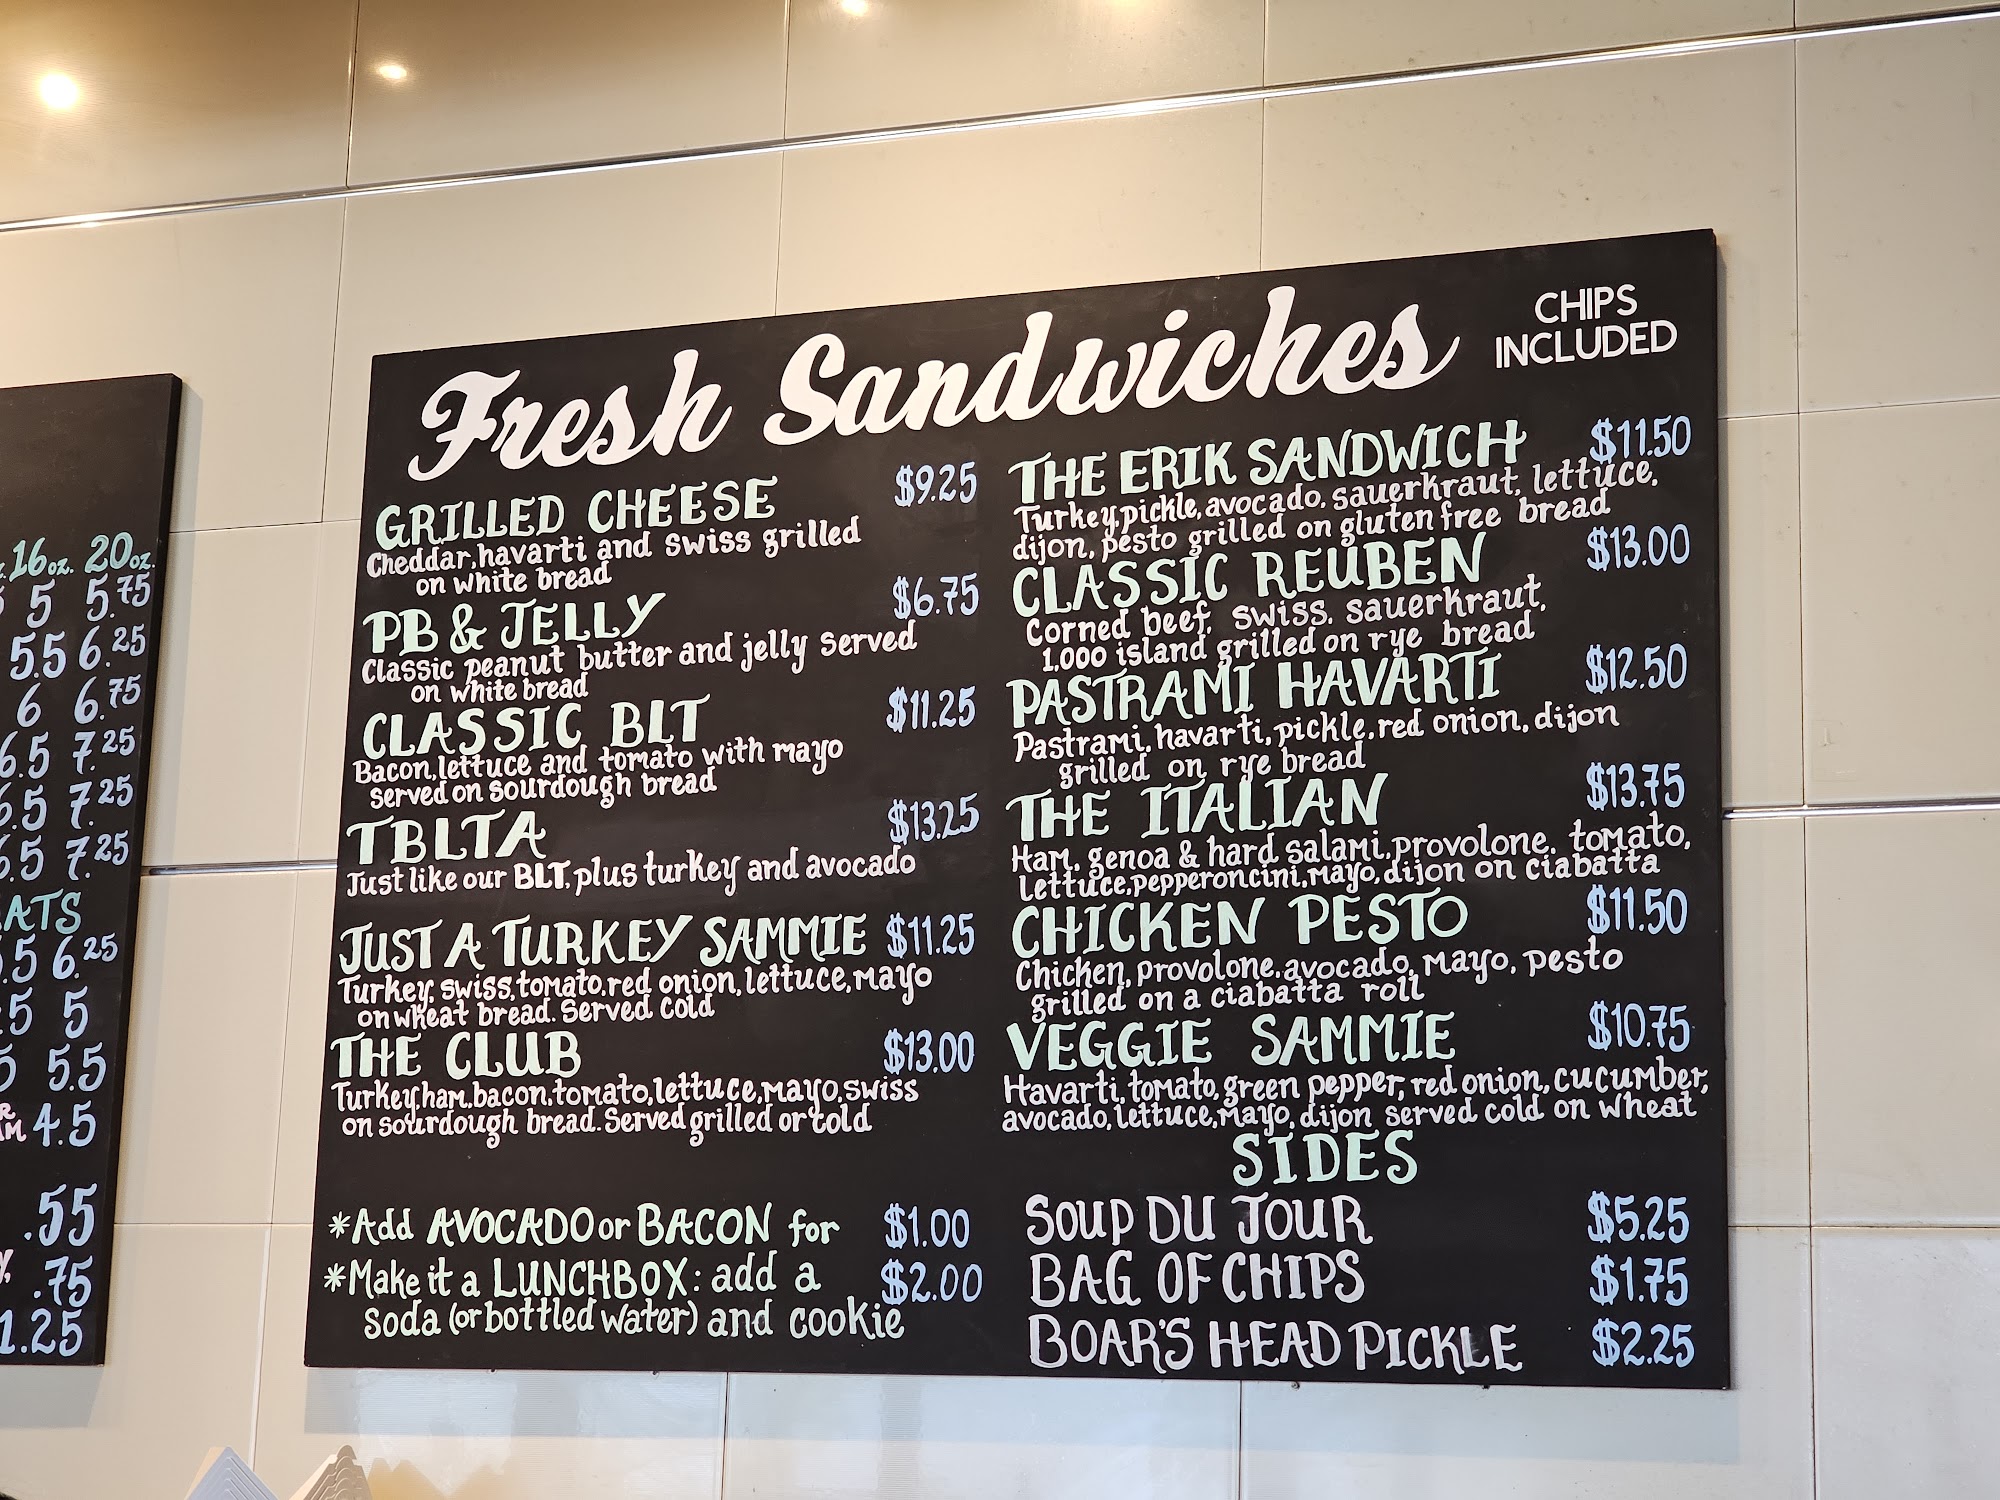 16oz. 20oz.
5 5.75
5.5 6.25
6 6.75
6.5 7.25
6.5 7.25
6.5 7.25
.5 6.25
5 5
5.5
4.5
.55
.75
1.25
Fresh Sandwiches
CHIPS
INCLUDED
GRILLED CHEESE $9.25
Cheddar, havarti and swiss grilled
on white bread
PB & JELLY $6.75
Classic peanut butter and jelly served
on white bread
CLASSIC BLT $11.25
Bacon, lettuce and tomato with mayo
served on sourdough bread
TBLTA $13.25
Just like our BLT, plus turkey and avocado
JUST A TURKEY SAMMIE $11.25
Turkey, swiss, tomato, red onion, lettuce, mayo
on wheat bread. Served cold
THE CLUB $13.00
Turkey, ham, bacon, tomato, lettuce, mayo, swiss
on sourdough bread. Served grilled or cold
*Add AVOCADO or BACON for $1.00
*Make it a LUNCHBOX: add a $2.00
soda (or bottled water) and cookie
THE ERIK SANDWICH $11.50
Turkey, pickle, avocado, sauerkraut, lettuce,
dijon, pesto grilled on gluten free bread
CLASSIC REUBEN $13.00
Corned beef, swiss, sauerkraut,
1,000 island grilled on rye bread
PASTRAMI HAVARTI $12.50
Pastrami, havarti, pickle, red onion, dijon
grilled on rye bread
THE ITALIAN $13.75
Ham, genoa & hard salami, provolone, tomato,
lettuce, pepperoncini, mayo, dijon on ciabatta
CHICKEN PESTO $11.50
Chicken, provolone, avocado, mayo, pesto
grilled on a ciabatta roll
VEGGIE SAMMIE $10.75
Havarti, tomato, green pepper, red onion, cucumber,
avocado, lettuce, mayo, dijon served cold on wheat
SIDES
SOUP DU JOUR $5.25
BAG OF CHIPS $1.75
BOAR'S HEAD PICKLE $2.25